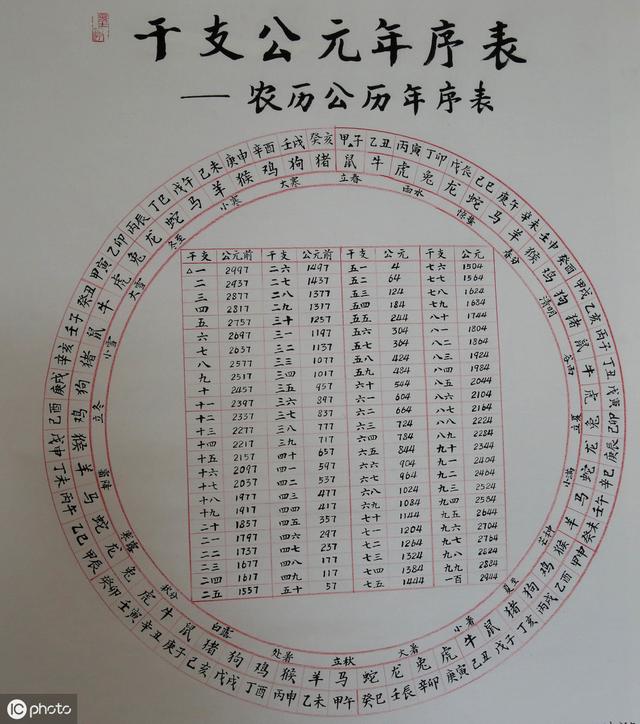 干支公元年序表
——农历公历年序表
甲子 乙丑 丙寅 丁卯 戊辰 己巳 庚午 辛未 壬申 癸酉 甲戌 乙亥 丙子 丁丑 戊寅 己卯 庚辰 辛巳 壬午 癸未 甲申 乙酉 丙戌 丁亥 戊子 己丑 庚寅 辛卯 壬辰 癸巳 甲午 乙未 丙申 丁酉 戊戌 己亥 庚子 辛丑 壬寅 癸卯 甲辰 乙巳 丙午 丁未 戊申 己酉 庚戌 辛亥 壬子 癸丑 甲寅 乙卯 丙辰 丁巳 戊午 己未 庚申 辛酉 壬戌 癸亥
鼠 牛 虎 兔 龙 蛇 马 羊 猴 鸡 狗 猪 鼠 牛 虎 兔 龙 蛇 马 羊 猴 鸡 狗 猪 鼠 牛 虎 兔 龙 蛇 马 羊 猴 鸡 狗 猪 鼠 牛 虎 兔 龙 蛇 马 羊 猴 鸡 狗 猪 鼠 牛 虎 兔 龙 蛇 马 羊 猴 鸡 狗 猪
立春 雨水 惊蛰 春分 清明 谷雨 立夏 小满 芒种 夏至 小暑 大暑 立秋 处暑 白露 秋分 寒露 霜降 立冬 小雪 大雪 冬至 小寒 大寒
干支 公元前 干支 公元前 干支 公元 干支 公元
△一 2997 二六 1497 五一 4 七六 1504
二 2937 二七 1437 五二 64 七七 1564
三 2877 二八 1377 五三 124 七八 1624
四 2817 二九 1317 五四 184 七九 1684
五 2757 三十 1257 五五 244 八十 1744
六 2697 三一 1197 五六 304 八一 1804
七 2637 三二 1137 五七 364 八二 1864
八 2577 三三 1077 五八 424 八三 1924
九 2517 三四 1017 五九 484 八四 1984
十 2457 三五 957 六十 544 八五 2044
十一 2397 三六 897 六一 604 八六 2104
十二 2337 三七 837 六二 664 八七 2164
十三 2277 三八 777 六三 724 八八 2224
十四 2217 三九 717 六四 784 八九 2284
十五 2157 四十 657 六五 844 九十 2344
十六 2097 四一 597 六六 904 九一 2404
十七 2037 四二 537 六七 964 九二 2464
十八 1977 四三 477 六八 1024 九三 2524
十九 1917 四四 417 六九 1084 九四 2584
二十 1857 四五 357 七十 1144 九五 2644
二一 1797 四六 297 七一 1204 九六 2704
二二 1737 四七 237 七二 1264 九七 2764
二三 1677 四八 177 七三 1324 九八 2824
二四 1617 四九 117 七四 1384 九九 2884
二五 1557 五十 57 七五 1444 一百 2944
IC photo